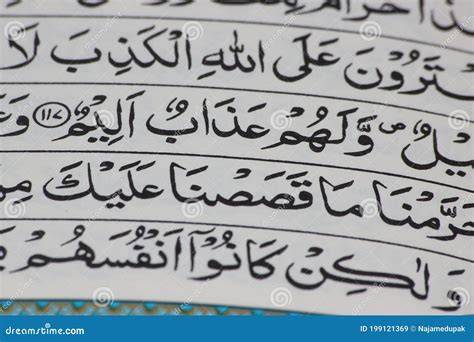 حَرَامٌ
تَرُوْنَ عَلَى اللّٰهِ الْكَذِبَ لَا
يْلٌ ۪ وَّلَهُمْ عَذَابٌ اَلِيْمٌ ﴿١١٧﴾ وَعَ
حَرَّمْنَا مَا قَصَصْنَا عَلَيْكَ مِ
وَلٰكِنْ كَانُوْٓا اَنْفُسَهُمْ
dreamstime.com
ID 199121369 © Najamedupak